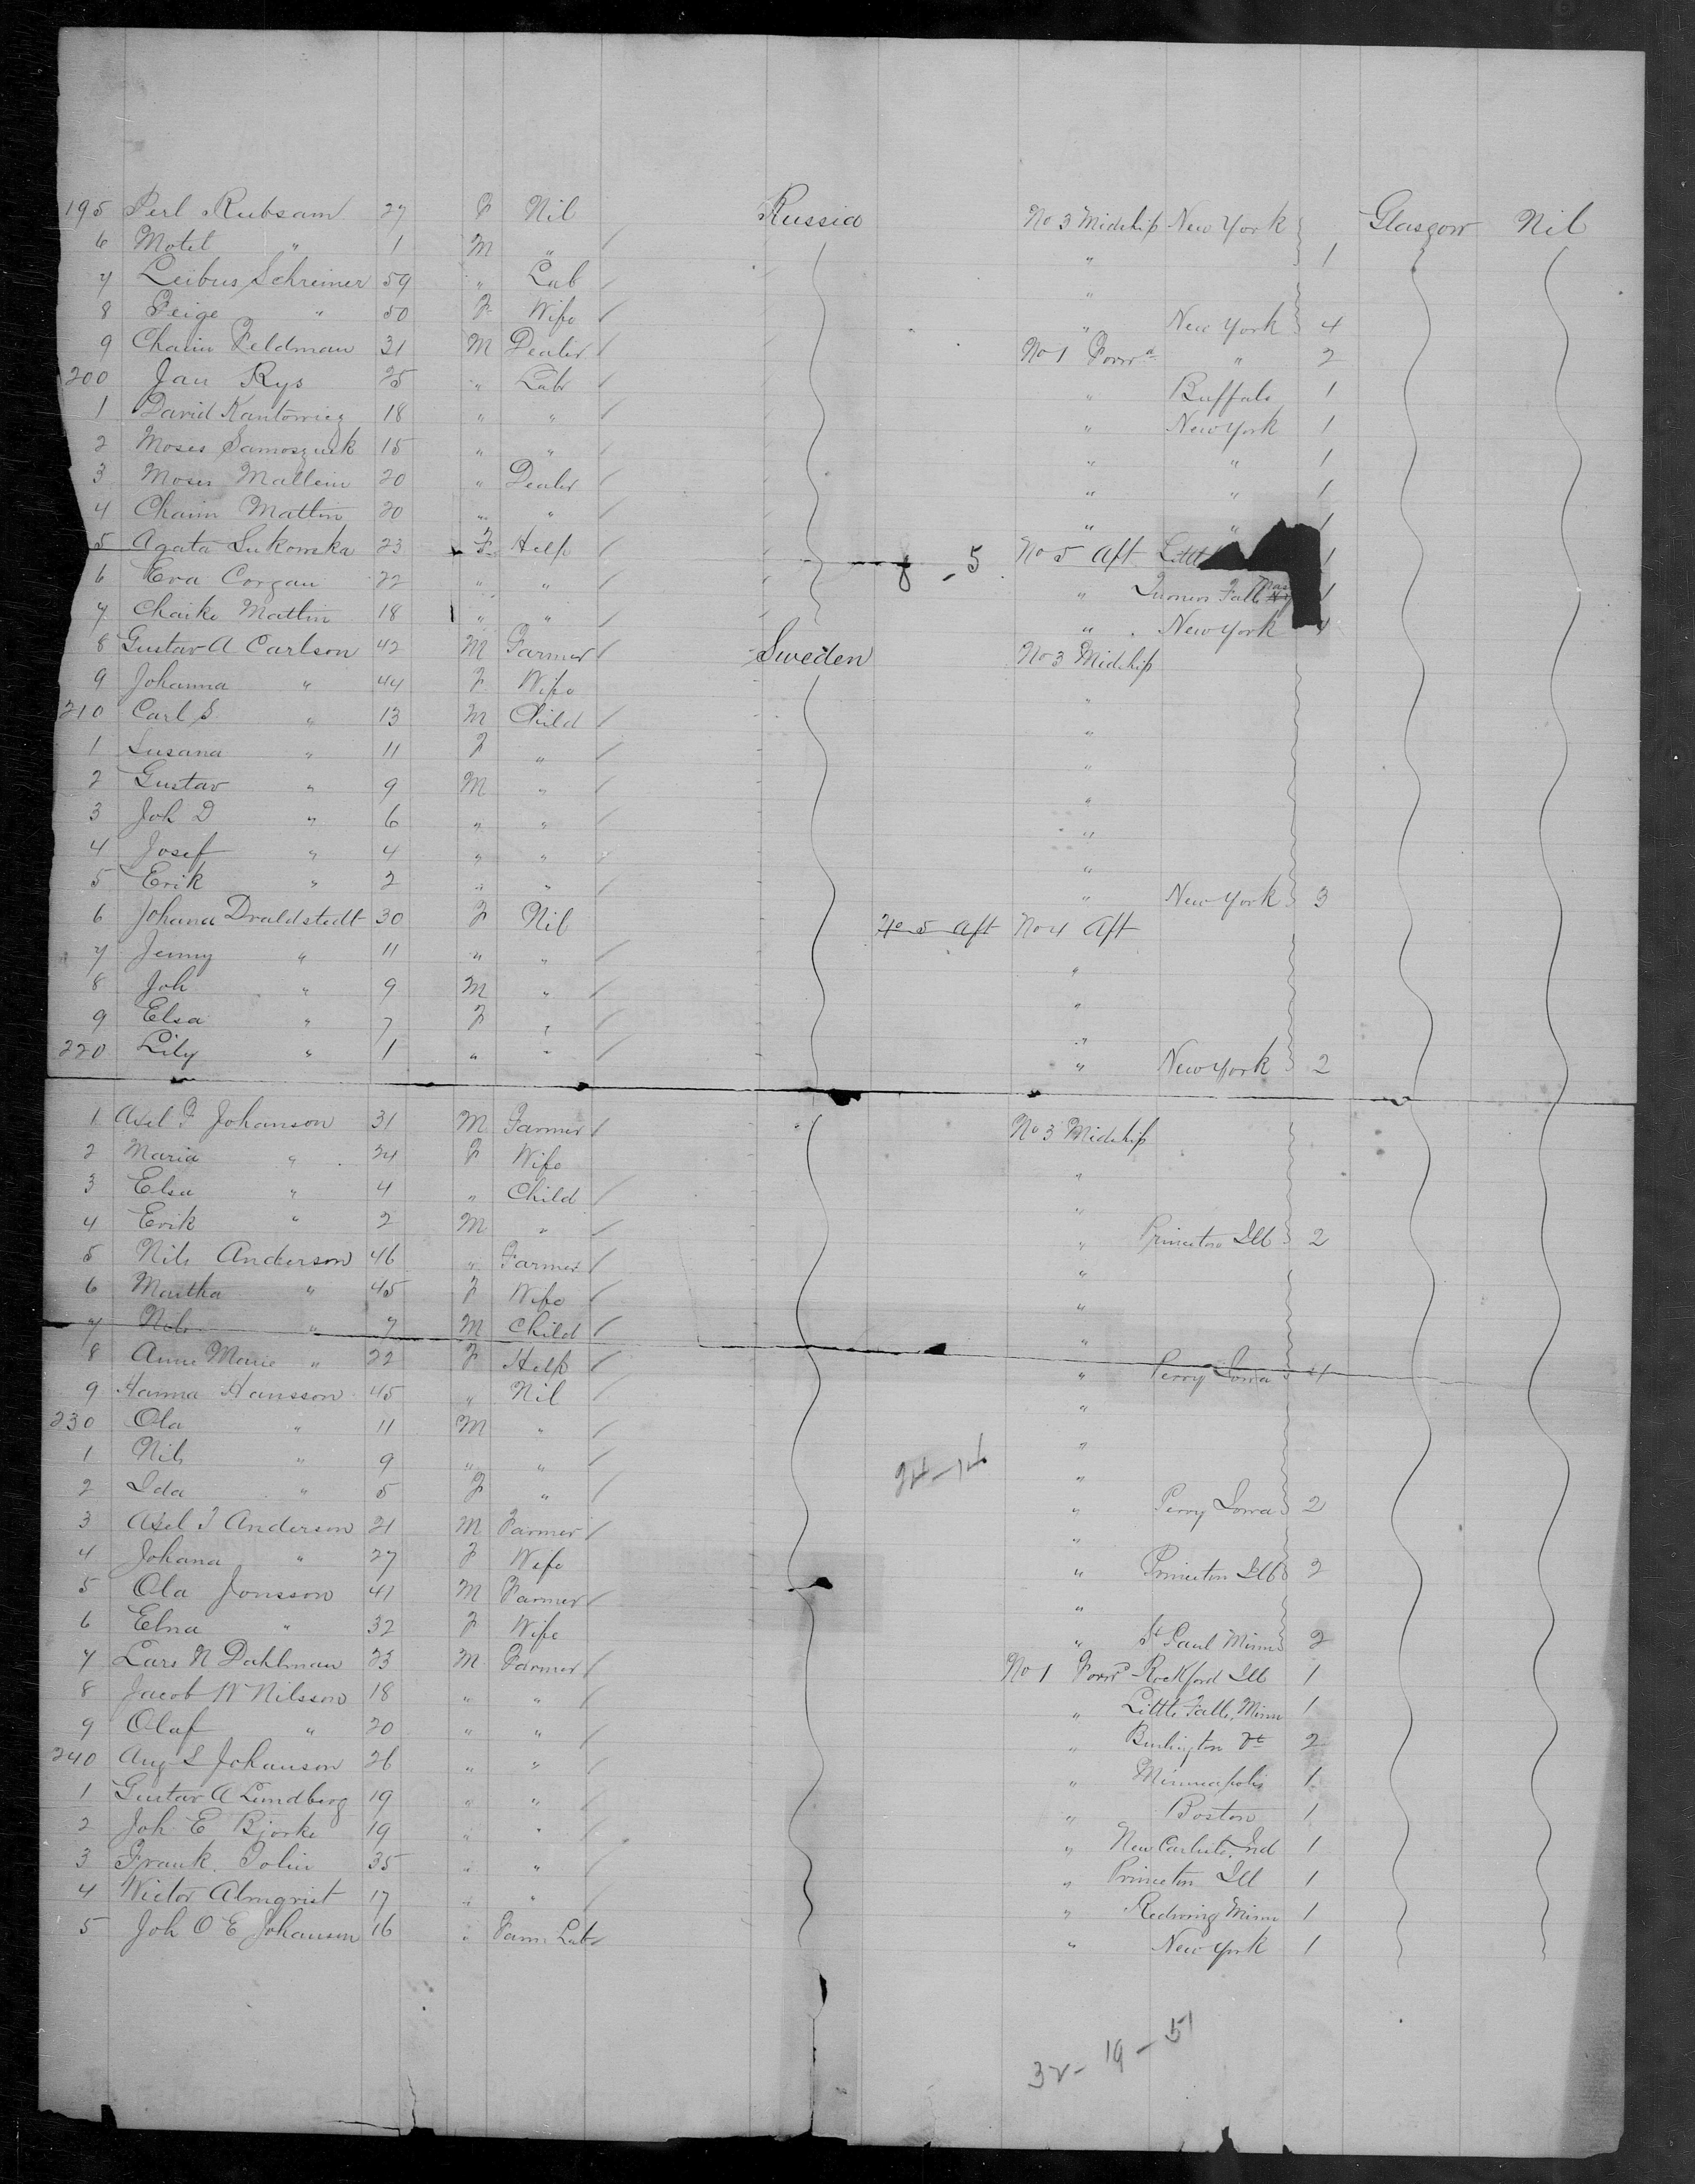 195 Perl Rubsam 27 F Nil Russia No 3 Midship New York Glasgow Nil
6 Motel " 1 M " " 1
7 Leibus Schreiner 59 " Lab "
8 Feige " 50 F Wife " New York 4
9 Chaim Feldman 31 M Dealer No 1 Forwd " 2
200 Jan Rys 25 " Labr " Buffalo 1
1 David Kantowicz 18 " " " New York 1
2 Moses Samoszuek 15 " " " " 1
3 Moses Mallein 20 " Dealer " " 1
4 Chaim Mattin 20 " " " " 1
5 Agata Sukowska 23 F Help 8 - 5 No 5 Aft Littl 1
6 Eva Corgan 22 " " " Turners Falls Mas 1
7 Chaike Mattin 18 " " " New York 4
8 Gustav A Carlson 42 M Farmer Sweden No 3 Midship
9 Johanna " 44 F Wife "
210 Carl S " 13 M Child "
1 Susana " 11 F " "
2 Gustav " 9 M " "
3 Joh D " 6 " " "
4 Josef " 4 " " "
5 Erik " 2 " " " New York 3
6 Johana Draldstedt 30 F Nil No 5 Aft No 4 Aft
7 Jenny " 11 " " "
8 Joh " 9 M " "
9 Elsa " 7 F " "
220 Lily " 1 " " " New York 2
1 Axel F Johanson 31 M Farmer No 3 Midship
2 Maria " 24 F Wife "
3 Elsa " 4 " Child "
4 Erik " 2 M " " Princeton Ill 2
5 Nils Anderson 46 " Farmer "
6 Martha " 45 F Wife "
7 Nils " 7 M Child "
8 Anne Marie " 22 F Help " Perry Iowa 4
9 Hanna Hansson 45 " Nil "
230 Ola " 11 M " "
1 Nils " 9 " " "
24-14
2 Ida " 5 F " " Perry Iowa 2
3 Axel T Anderson 21 M Farmer "
4 Johana " 27 F Wife " Princeton Ill 2
5 Ola Jonsson 41 M Farmer "
6 Elna " 32 F Wife " St Paul Minn 2
7 Lars N Dahlman 23 M Farmer No 1 Forwd Rockford Ill 1
8 Jacob W Nilsson 18 " " " Little Falls, Minn 1
9 Olaf " 20 " " " Burlington Vt 2
240 Aug L Johanson 26 " " " Minneapolis 1
1 Gustav A Lundberg 19 " " " Boston 1
2 Joh E Bjorke 19 " " " New Carlisle, Ind 1
3 Frank Tolin 35 " " " Princeton Ill 1
4 Wictor Almqvist 17 " " " Redwing Minn 1
5 Joh O E Johanson 16 " Farm Lab " New York 1
32 - 19 - 51